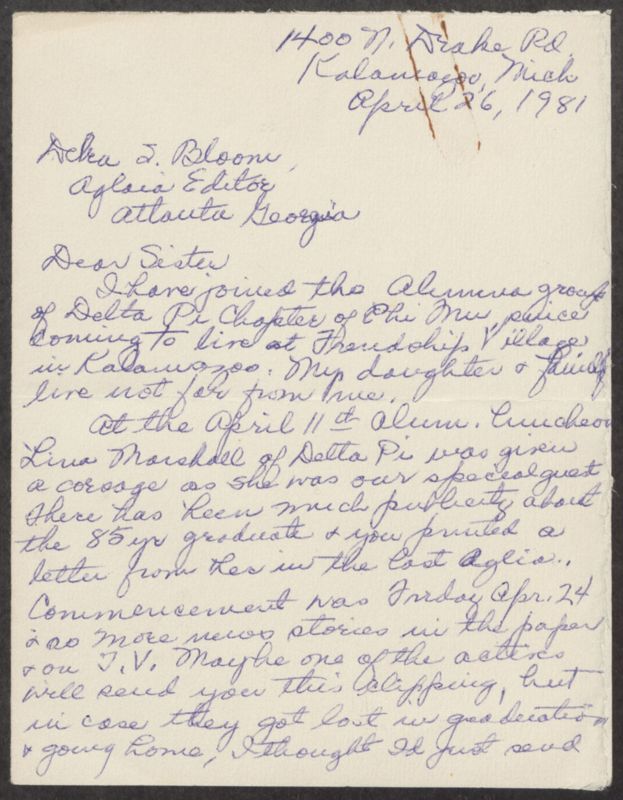 1400 N. Drake Rd.
Kalamazoo, Mich
April 26, 1981
Debra S. Bloom,
Aglaia Editor
Atlanta Georgia
Dear Sister
I have joined the Alumna group
of Delta Pi Chapter of Phi Mu, since
coming to live at Friendship Village
in Kalamazoo. My daughter & family
live not far from me.
At the April 11th alum. luncheon
Lina Marshall of Delta Pi was given
a corsage as she was our special guest
There has been much publicity about
the 85 yr graduate & you printed a
letter from her in the last Aglia..
Commencement was Friday Apr. 24
& so more news stories in the paper
& on T.V. Maybe one of the actives
will send you this clipping, but
in case they got lost in graduation
& going home, I thought I'd just send